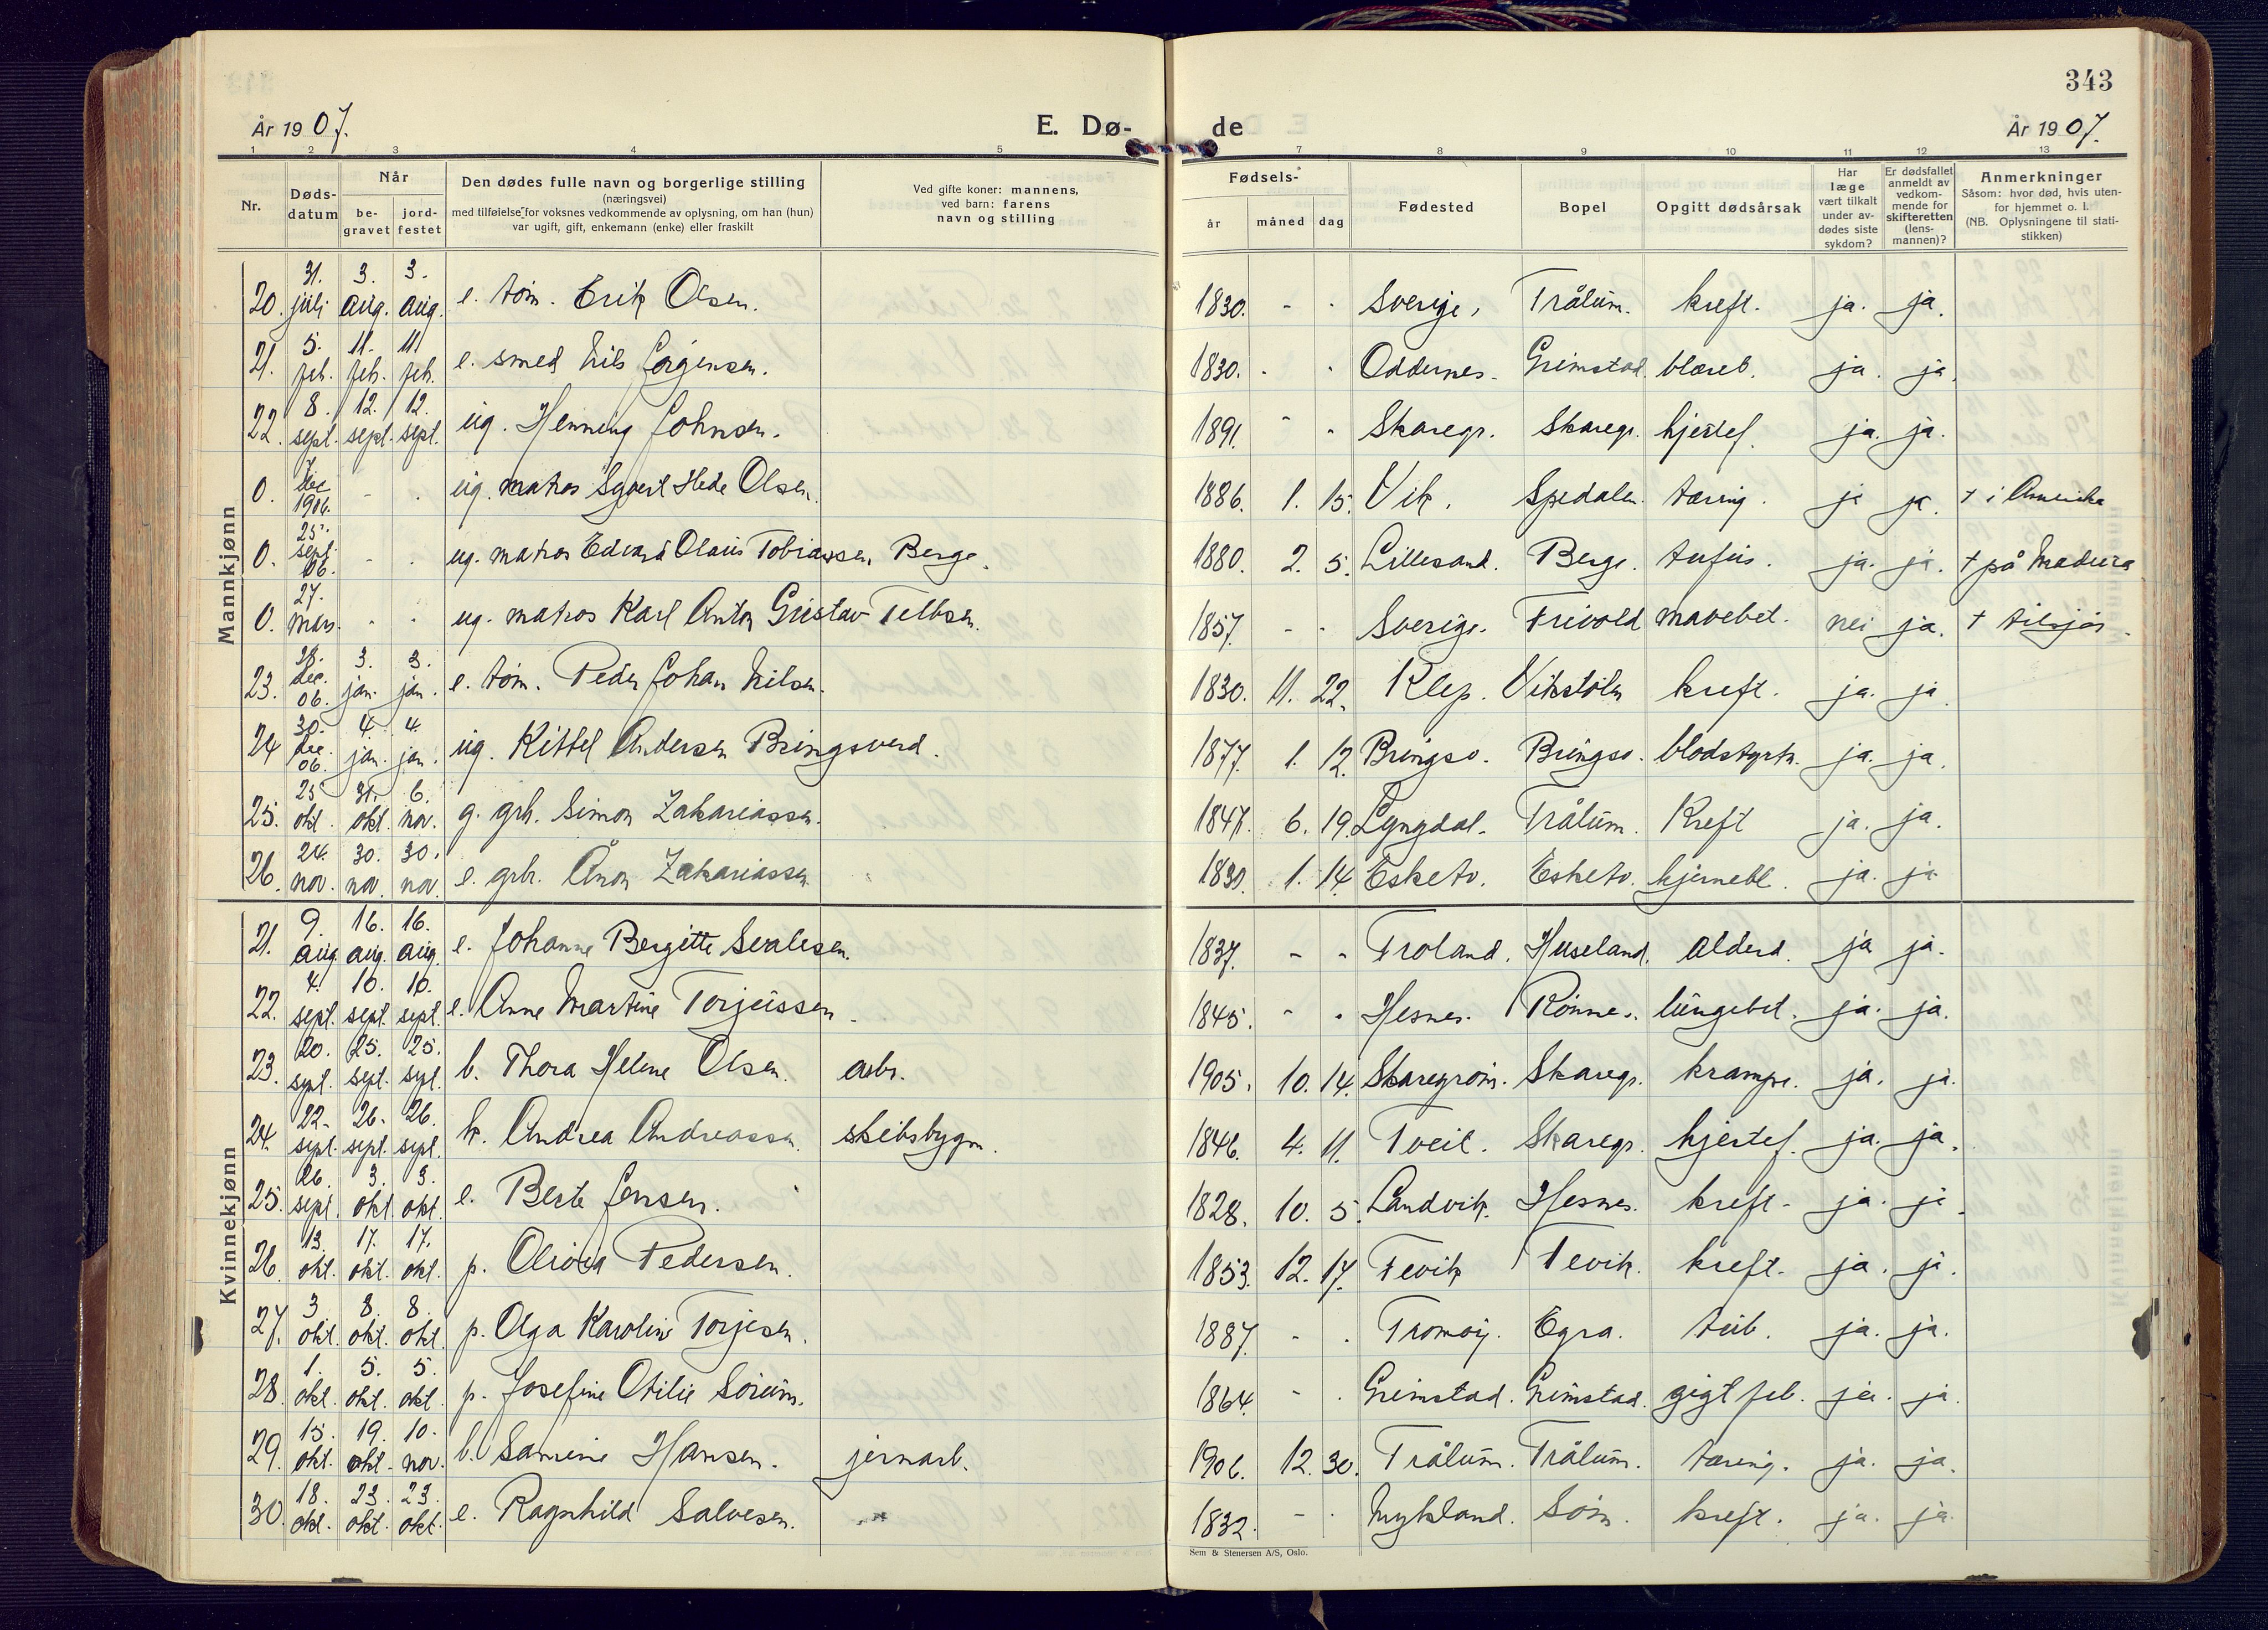 343
År 1907.
E. Dø-
de
År 1907.
1 2 3 4 5 7 8 9 10 11 12 13
Nr.
Døds-
datum
Når
be-
gravet
jord-
festet
Den dødes fulle navn og borgerlige stilling
(næringsvei)
med tilføielse for voksnes vedkommende av oplysning, om han (hun)
var ugift, gift, enkemann (enke) eller fraskilt
Ved gifte koner: mannens,
ved barn: farens
navn og stilling
Fødsels-
år
måned
dag
Fødested
Bopel
Opgitt dødsårsak
Har
læge
vært tilkalt
under av-
dødes siste
sykdom?
Er dødsfallet
anmeldt av
vedkom-
mende for
skifteretten
(lens-
mannen)?
Anmerkninger
Såsom: hvor død, hvis uten-
for hjemmet o. l.
(NB. Oplysningene til stati-
stikken)
Mannkjønn
20. 31. juli 3. aug. 3. aug. e. tøm. Erik Olsen. 1830. - - Sverige, Trålum. kreft. ja. ja.
21. 5. feb. 11. feb. 11. feb. e. smed Nils Jørgensen. 1830. - - Oddernes. Grimstad. blæreb. ja. ja.
22. 8. sept. 12. sept. 12. sept. ug. Henning Johnsen. 1891. - - Skaregr. Skaregr. hjertef. ja. ja.
0. 7. dec 1906. - - ug. matros Sgvert Hede Olsen. 1886. 1. 15. Vik. Spedalen. tæring. ja ja. † i Amerika
0. 25. sept. 06. - - ug. matros Edvard Olaus Tobiassen, Berge. 1880. 2. 5. Lillesand. Berge. tyfus. ja. ja. † på Madeira
0. 27. mars. - - ug. matros Karl Anton Gustav Tellbsen. 1857. - - Sverige. Frivold mavebet. nei ja. † tilsjøs.
23. 28. dec. 06. 3. jan. 3. jan. e. tøm. Peder Johan Nilsen. 1830. 11. 22. Klep. Vikstølen kreft. ja. ja.
24 30. dec. 06. 4. jan. 4. jan. ug. Kittel Andersen Bringsverd. 1877. 1. 12. Bringsv. Bringsv. blodstyrtn. ja. ja.
25. 25 okt. 31. okt. 6. nov. g. grb. Simon Zakariassen. 1847. 6. 19. Lyngdal. Trålum. Kreft ja. ja.
26. 24. nov. 30. nov. 30. nov. e. grb. Ånon Zakariassen 1830. 1. 14. Esketv. Esketv. hjernebl. ja. ja
Kvinnekjønn
21. 9. aug. 16. aug. 16. aug. e. Johanne Bergitte Svalesen. 1837. - - Froland. Huseland. alderd. ja ja.
22. 4. sept. 10. sept. 10. sept. e. Anne Martine Torjussen. 1845. - - Hesnes. Rønnes. lungebet. ja. ja.
23. 20. sept. 25. sept. 25. sept. b. Thora Helene Olsen. arbr. 1905. 10. 14. Skaregrøm. Skaregr. krampe. ja. ja.
24. 22. sept. 26. sept. 26. sept. k. Andrea Andreassen. skibsbygm. 1846. 4. 11. Tveit. Skaregr. hjertef. ja. ja.
25. 26. sept. 3. okt. 3. okt. e. Berte Jensen. 1828. 10. 5. Landvik. Hesnes. kreft. ja. ja.
26. 13. okt. 17. okt. 17. okt. p. Olivia Pedersen. 1853. 12. 17. Fevik Fevik. kreft. ja. ja.
27. 3 okt. 8. okt. 8. okt. p. Olga Karoline Torjesen. 1887. - - Tromøy. Egra. tub. ja. ja.
28. 1. okt. 5. okt. 5. okt. p. Josefine Otilie Sørum. 1864. - - Grimstad. Grimstad. gigtfeb. ja. ja.
29. 15. okt. 19. okt. 10. nov. b. Samine Hansen. jernarb. 1906. 12. 30. Trålum. Trålum. tæring. ja. ja.
30. 18. okt. 23. okt. 23. okt. e. Ragnhild Salvesen. 1832. - - Mykland. Søm. kreft. ja. ja.
Sem & Stenersen A/S, Oslo.